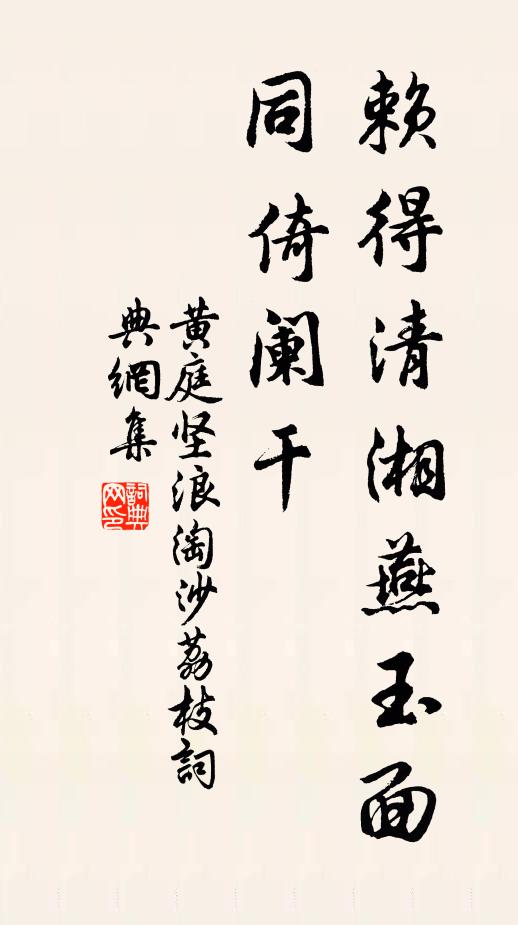 赖得清湘燕玉面
同倚阑干
黄庭坚浪淘沙荔枝詞
典網集
詞典网印